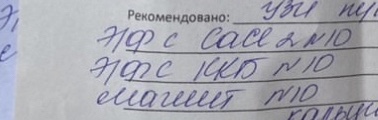 Рекомендовано: УЗИ
ЭФС CaCl2 N10
ЭФС ККБ N10
магнит N10
кальци